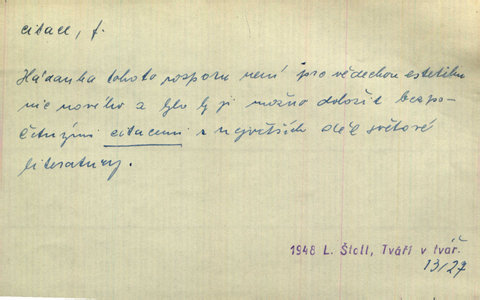 citace, f.
Hádanka tohoto rozporu není pro vědeckou estetiku
nic nového a bylo by ji možno doložit bezpo-
četnými citacemi z největších děl světové
literatury.
1948 L. Štoll, Tváří v tvář.
13/27